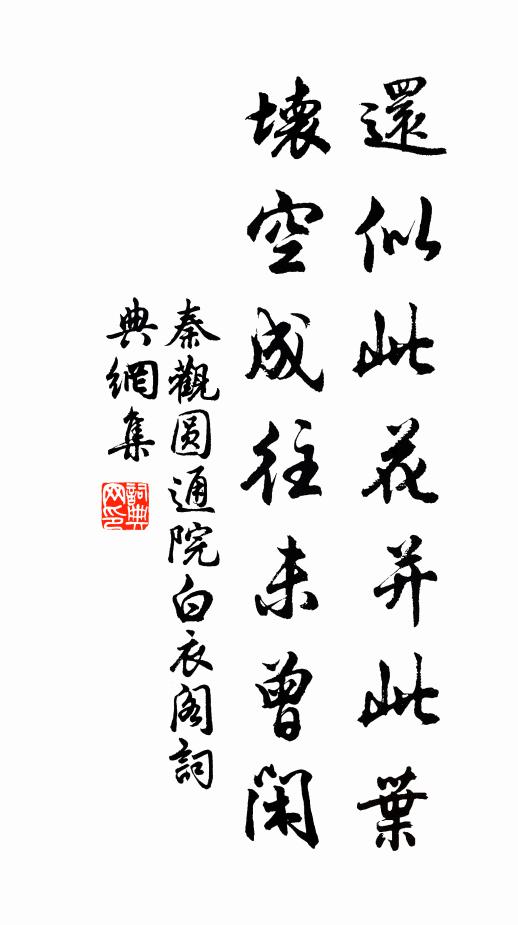 還似此花并此葉
壞空成往未曾閑
秦觀圆通院白衣阁詞
典網集
詞典
网印